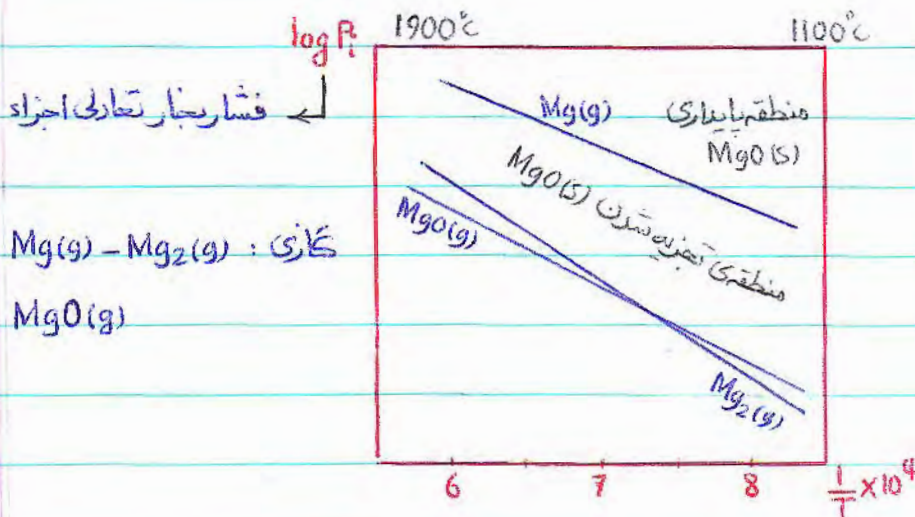 1900°C 1100°C
log Pᵢ
فشار بخار تعادلی اجزاء
گازی : Mg(g) – Mg₂(g)
MgO(g)
Mg(g)
منطقه پایداری
MgO(s)
منطقه‌ی تجزیه شدن MgO(s)
MgO(g)
Mg₂(g)
6 7 8 1/T ×10⁴